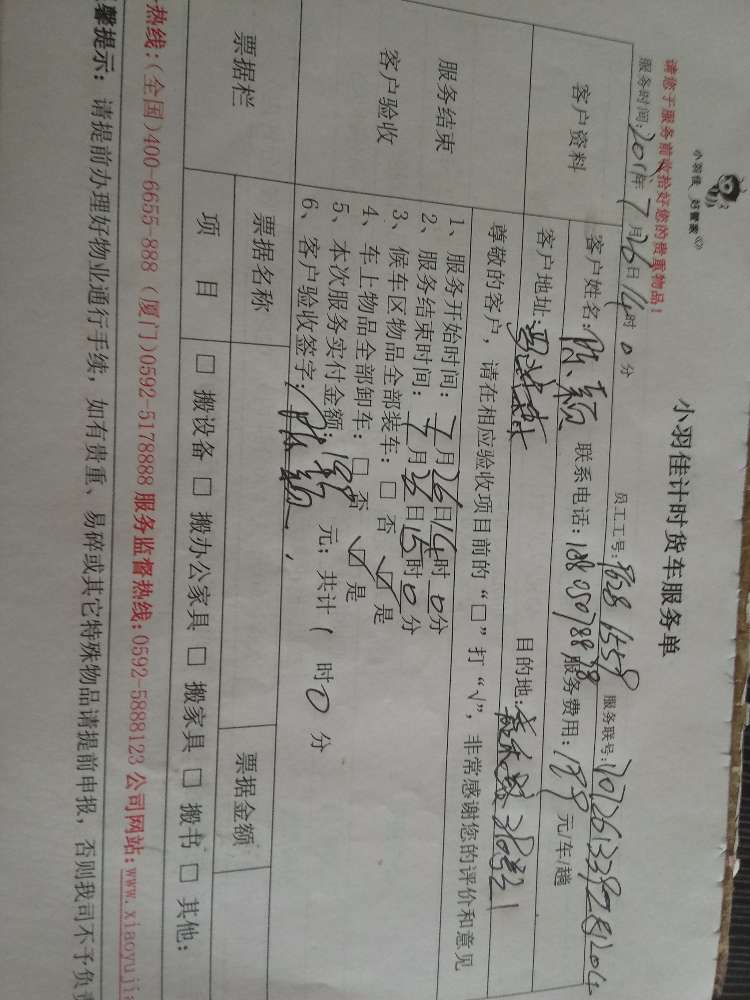 小羽佳 好管家
小羽佳计时货车服务单
请您于服务前收拾好您的贵重物品!
服务时间: 年7月26日14时0分 员工工号: 服务联号:
客户资料
客户姓名:陈颖 联系电话: 服务费用:199元/车/趟
客户地址: 目的地:
尊敬的客户,请在相应验收项目前的“□”打“√”,非常感谢您的评价和意见
服务结束
客户验收
1、服务开始时间:7月26日14时0分
2、服务结束时间:7月26日15时0分
3、候车区物品全部装车:□ 否 ☑ 是
4、车上物品全部卸车:□ 否 ☑ 是
5、本次服务实付金额:199元;共计1时0分
6、客户验收签字:陈颖
票据栏 票据名称 票据金额
项 目 □ 搬设备 □ 搬办公家具 □ 搬家具 □ 搬书 □ 其他:
热线:(全国)400-6655-888 (厦门)0592-5178888 服务监督热线:0592-5888123 公司网站:www.xiaoyujia
馨提示:请提前办理好物业通行手续,如有贵重、易碎或其它特殊物品请提前申报,否则我司不予负责